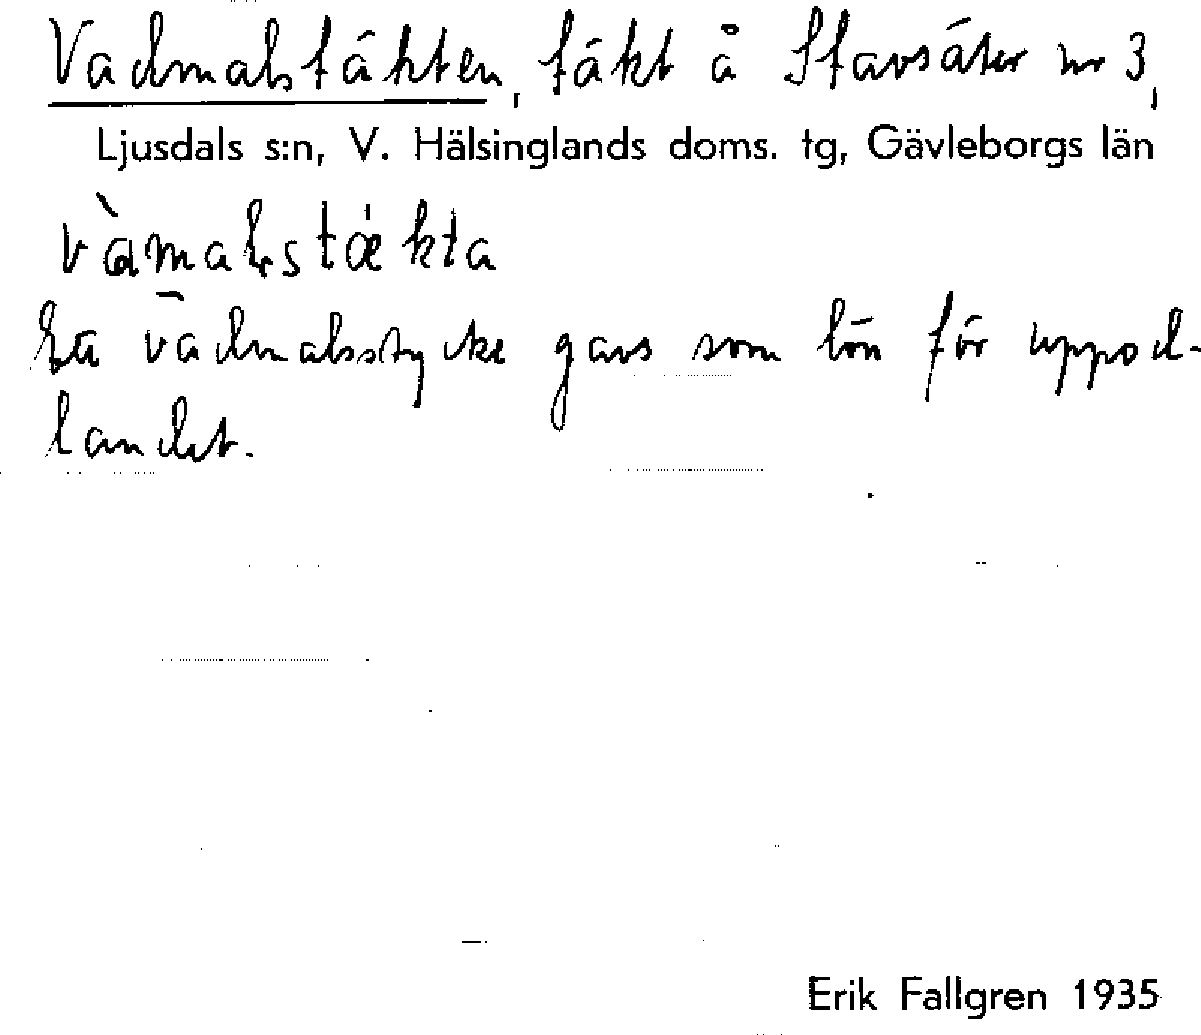 Vadmalstäkten, täkt å Stavsäter nr 3,
Ljusdals s:n, V. Hälsinglands doms. tg, Gävleborgs län
vàmaḷstækta
Ett vadmalsstycke gavs som lön för uppod-
landet.
Erik Fallgren 1935